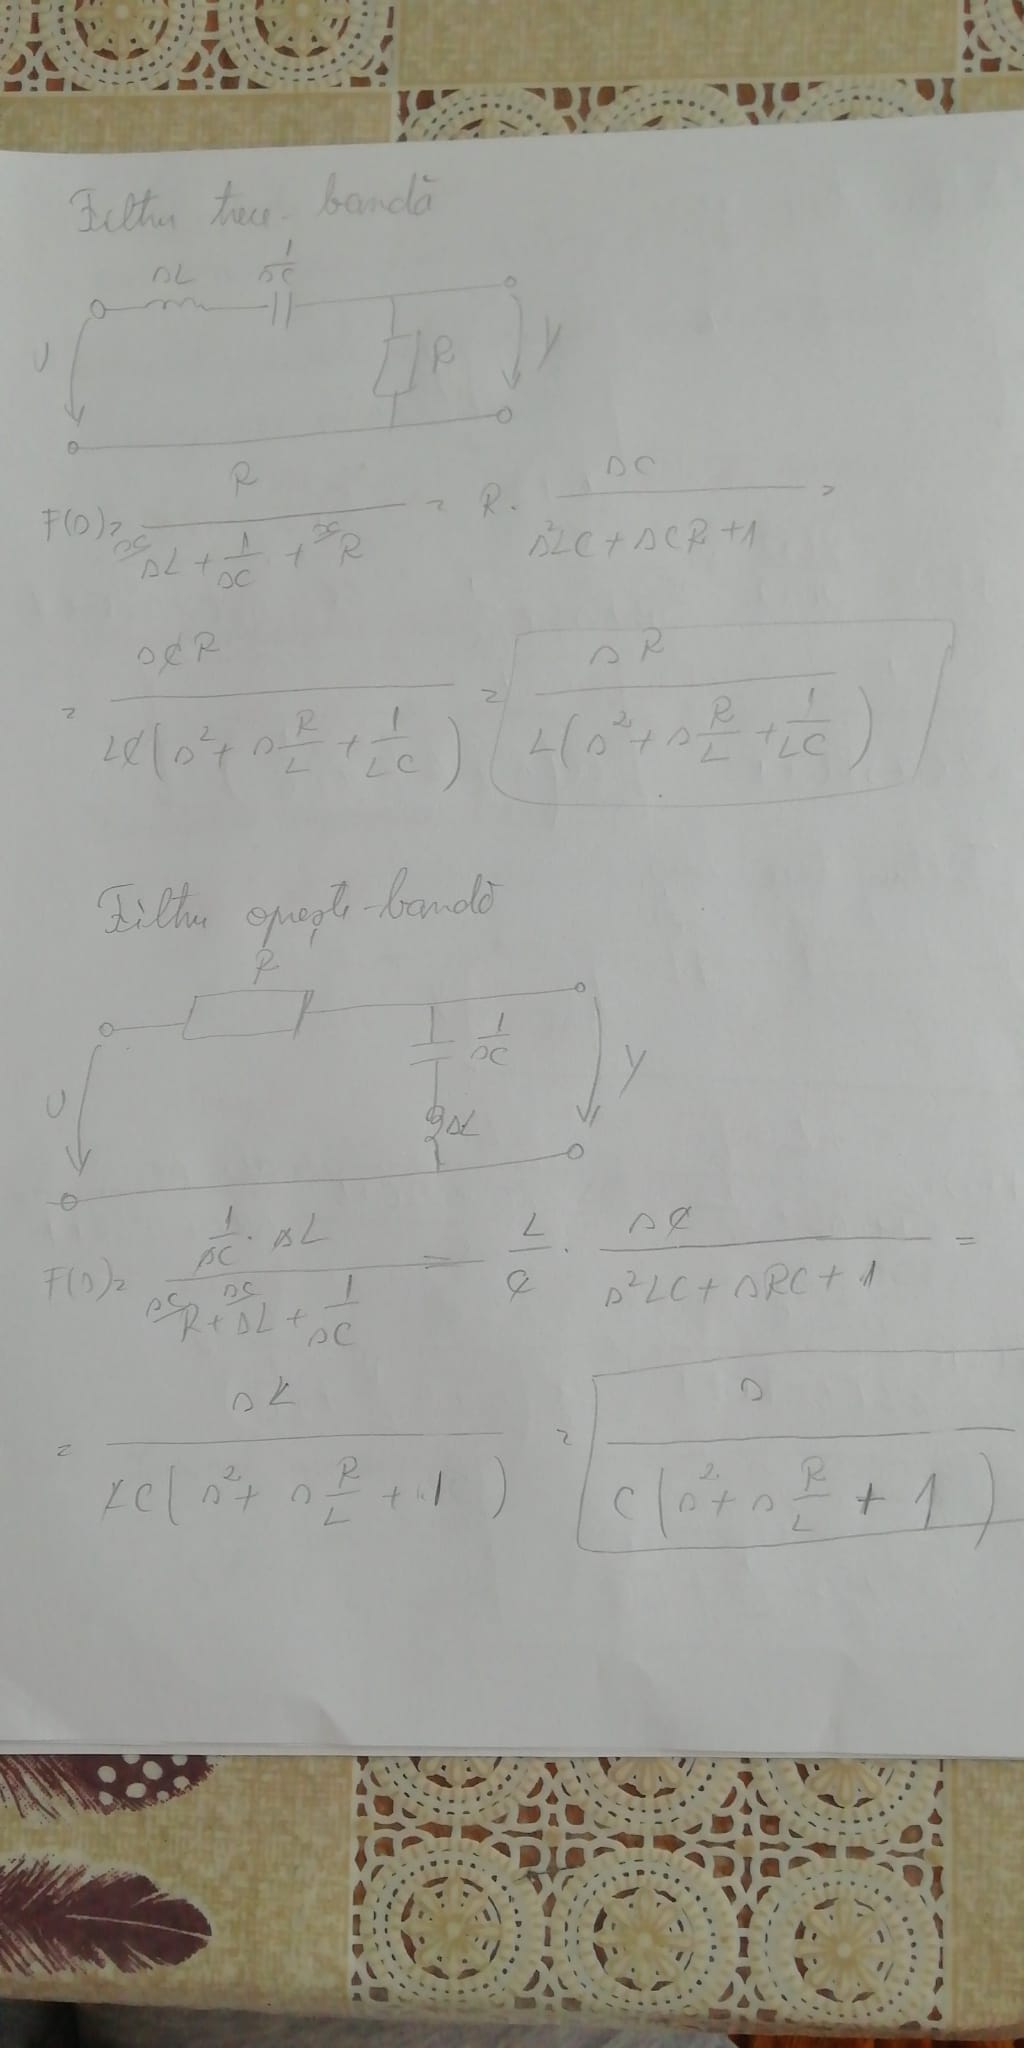 Filtru trece-bandă
sL 1/sC
U R Y
F(s)= R / (sL + 1/sC + R) = R · sC / (s²LC + sCR + 1) =
= sCR / (LC(s² + s R/L + 1/LC)) = sR / (L(s² + s R/L + 1/LC))
Filtru oprește-bandă
R
1/sC
U Y
sL
F(s)= (1/sC · sL) / (R + sL + 1/sC) = L/C · sC / (s²LC + sRC + 1) =
= sL / (LC(s² + s R/L + 1)) = s / (C(s² + s R/L + 1))